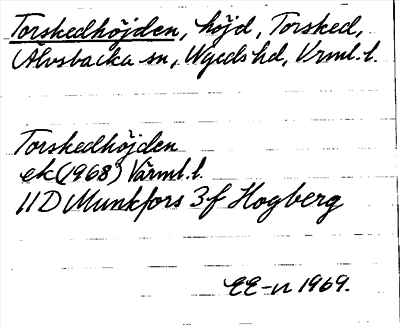 Torskedhöjden, höjd, Torsked,
Älvsbacka sn, Nyeds hd, Vrml. l.
Torskedhöjden
ek (1968) Värml. l.
11D Munkfors 3f Hogberg
EE-n 1969.